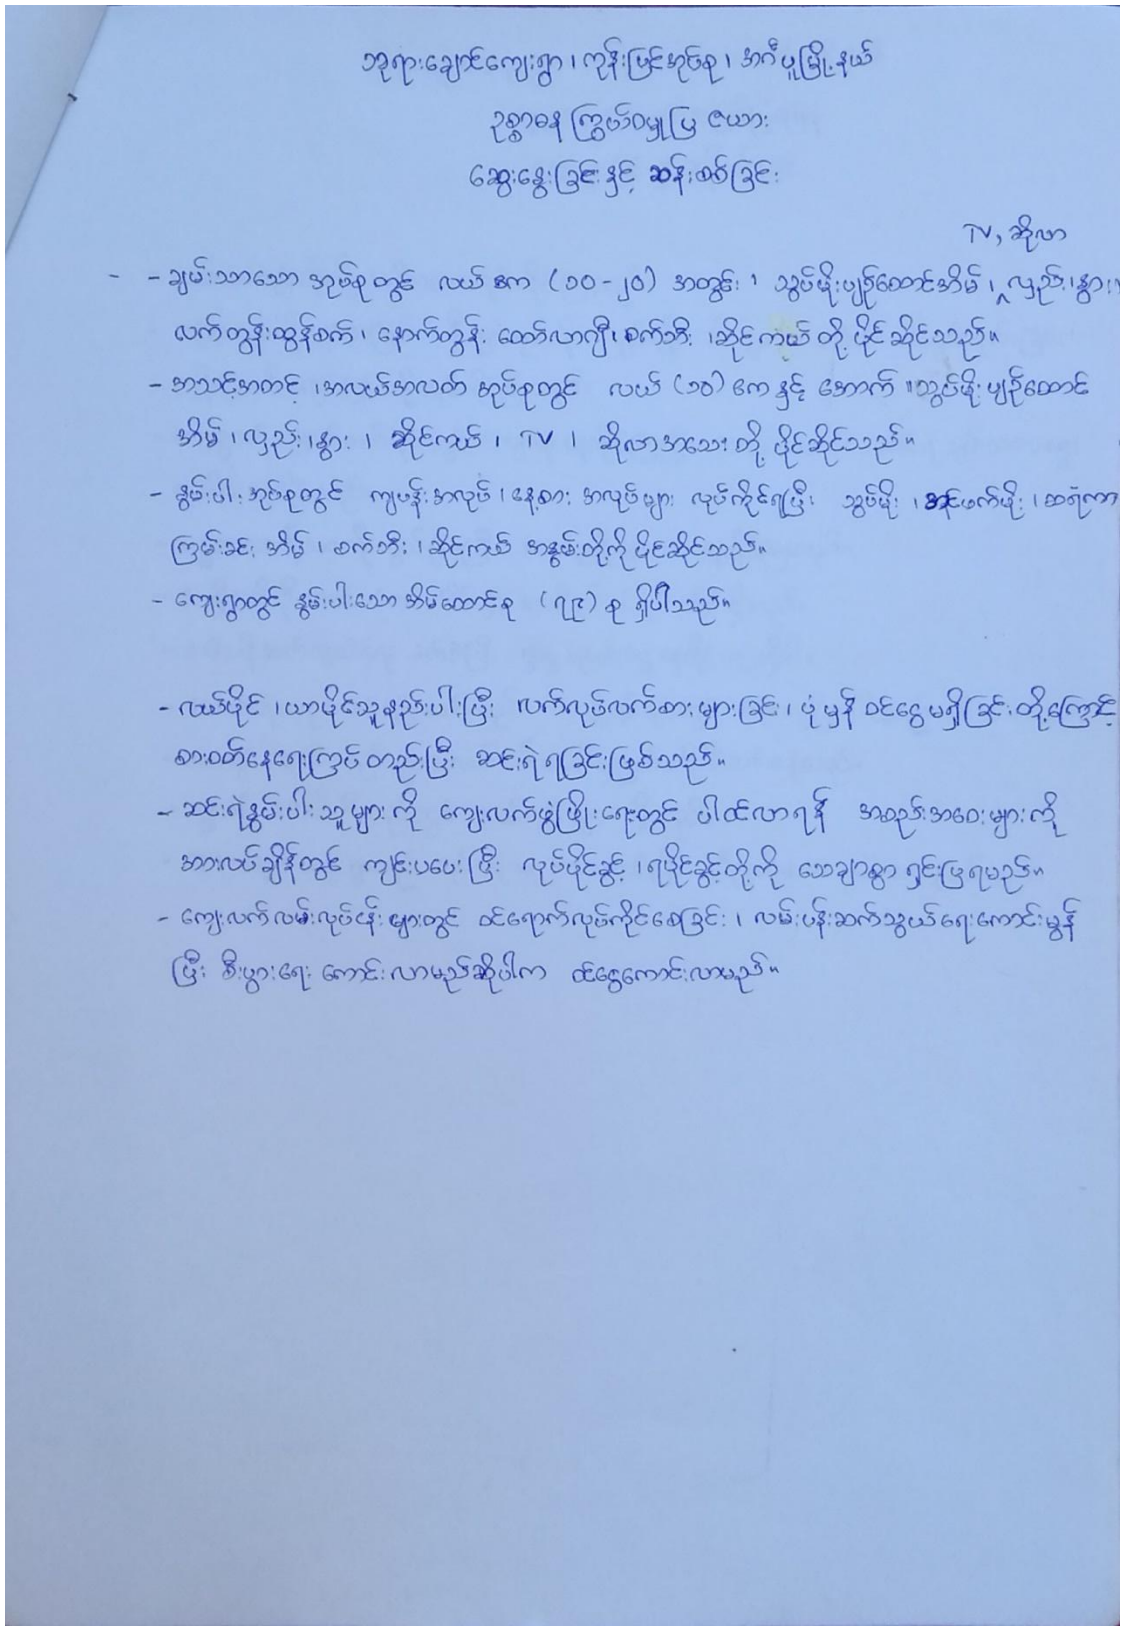 ဘုရားချောင်ကျေးရွာ၊ ကုန်းမြင့်အုပ်စု၊ အင်္ဂပူမြို့နယ်
ဥစ္စာဓန ကြွယ်ဝမှုပြ ဇယား
ဆွေးနွေးခြင်းနှင့် ဆန်းစစ်ခြင်း
TV, ဆိုလာ
- - ချမ်းသာသော အုပ်စုတွင် လယ်ဧက (၁၀-၂၀) အတွင်း၊ သွပ်မိုးပျဉ်ထောင်အိမ်၊ လှည်း၊နွား၊
လက်တွန်းထွန်စက်၊ နောက်တွန်း ထော်လာဂျီ၊ စက်ဘီး ၊ဆိုင်ကယ် တို့ ပိုင်ဆိုင်သည်။
- အသင့်အတင့် ၊အလယ်အလတ် အုပ်စုတွင် လယ် (၁၀) ဧကနှင့် အောက် ၊သွပ်မိုးပျဉ်ထောင်
အိမ်၊ လှည်း၊နွား ၊ ဆိုင်ကယ်၊ TV ၊ ဆိုလာအသေးတို့ ပိုင်ဆိုင်သည်။
- နွမ်းပါးအုပ်စုတွင် ကျပန်းအလုပ်၊ နေ့စား အလုပ်များ လုပ်ကိုင်ရပြီး သွပ်မိုး ၊အင်ဖက်မိုး ၊ထရံကာ
ကြမ်းခင်း အိမ်၊ စက်ဘီး ၊ဆိုင်ကယ် အနွမ်းတို့ကိုပိုင်ဆိုင်သည်။
- ကျေးရွာတွင် နွမ်းပါးသော အိမ်ထောင်စု (၇၉) စု ရှိပါသည်။
- လယ်ပိုင် ၊ယာပိုင်သူနည်းပါးပြီး လက်လုပ်လက်စားများခြင်း၊ ပုံမှန် ဝင်ငွေမရှိခြင်းတို့ကြောင့်
စားဝတ်နေရေးကြပ်တည်းပြီး ဆင်းရဲရခြင်းဖြစ်သည်။
- ဆင်းရဲနွမ်းပါးသူများကို ကျေးလက်ဖွံ့ဖြိုးရေးတွင် ပါဝင်လာရန် အစည်းအဝေးများကို
အားလပ်ချိန်တွင် ကျင်းပပေးပြီး လုပ်ပိုင်ခွင့် ၊ရပိုင်ခွင့်တို့ကို သေချာစွာ ရှင်းပြရမည်။
- ကျေးလက်လမ်းလုပ်ငန်းများတွင် ဝင်ရောက်လုပ်ကိုင်စေခြင်း၊ လမ်းပန်းဆက်သွယ်ရေးကောင်းမွန်
ပြီး စီးပွားရေး ကောင်းလာမည်ဆိုပါက ဝင်ငွေကောင်းလာမည်။